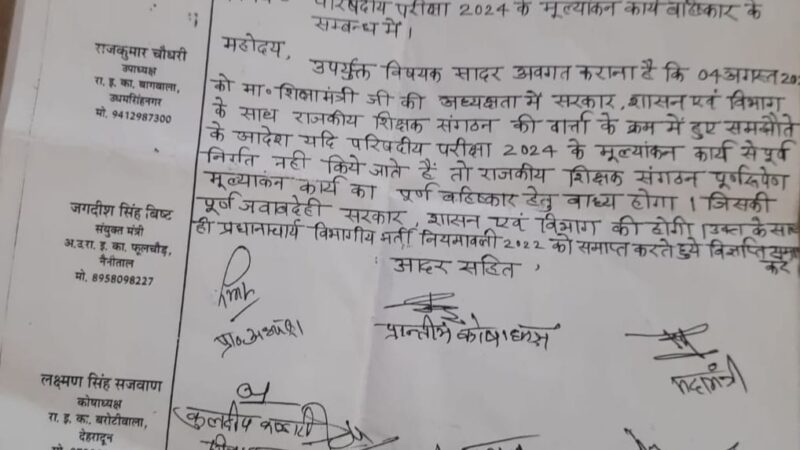 परिषदीय परीक्षा 2024 के मूल्यांकन कार्य बहिष्कार के
सम्बन्ध में।
महोदय,
उपर्युक्त विषयक सादर अवगत कराना है कि 04 अगस्त
को मा० शिक्षामंत्री जी की अध्यक्षता में सरकार, शासन एवं विभाग
के साथ राजकीय शिक्षक संगठन की वार्ता के क्रम में हुए समझौते
के आदेश यदि परिषदीय परीक्षा 2024 के मूल्यांकन कार्य से पूर्व
निर्गत नही किये जाते हैं तो राजकीय शिक्षक संगठन पूर्णरूपेण
मूल्यांकन कार्य का पूर्ण बहिष्कार हेतु वाध्य होगा। जिसकी
पूर्ण जवाबदेही सरकार, शासन एवं विभाग की होगी। उक्त के साथ
ही प्रधानाचार्य विभागीय भर्ती नियमावली 2022 को समाप्त करते हुये विज्ञप्ति
करे
आदर सहित,
प्रान्तीय कोषाध्यक्ष
महामंत्री
कुलदीप
राजकुमार चौधरी
उपाध्यक्ष
रा. इ. का. बागवाला,
उधमसिंहनगर
मो. 9412987300
जगदीश सिंह बिष्ट
संयुक्त मंत्री
अ.उ.रा. इ. का. फूलचौड़,
नैनीताल
मो. 8958098227
लक्ष्मण सिंह सजवाण
कोषाध्यक्ष
रा. इ. का. बरोटीवाला,
देहरादून